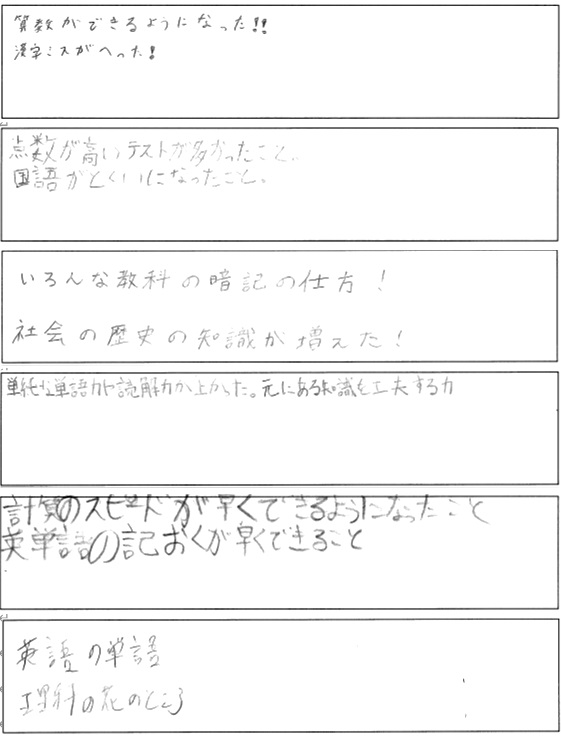 算数ができるようになった!!
漢字ミスがへった!
点数が高いテストが多かったこと。
国語がとくいになったこと。
いろんな教科の暗記の仕方!
社会の歴史の知識が増えた!
単純な単語力や読解力が上がった。元にある知識を工夫する力
計算のスピードが早くできるようになったこと
英単語の記おくが早くできること
英語の単語
理科の花のところ